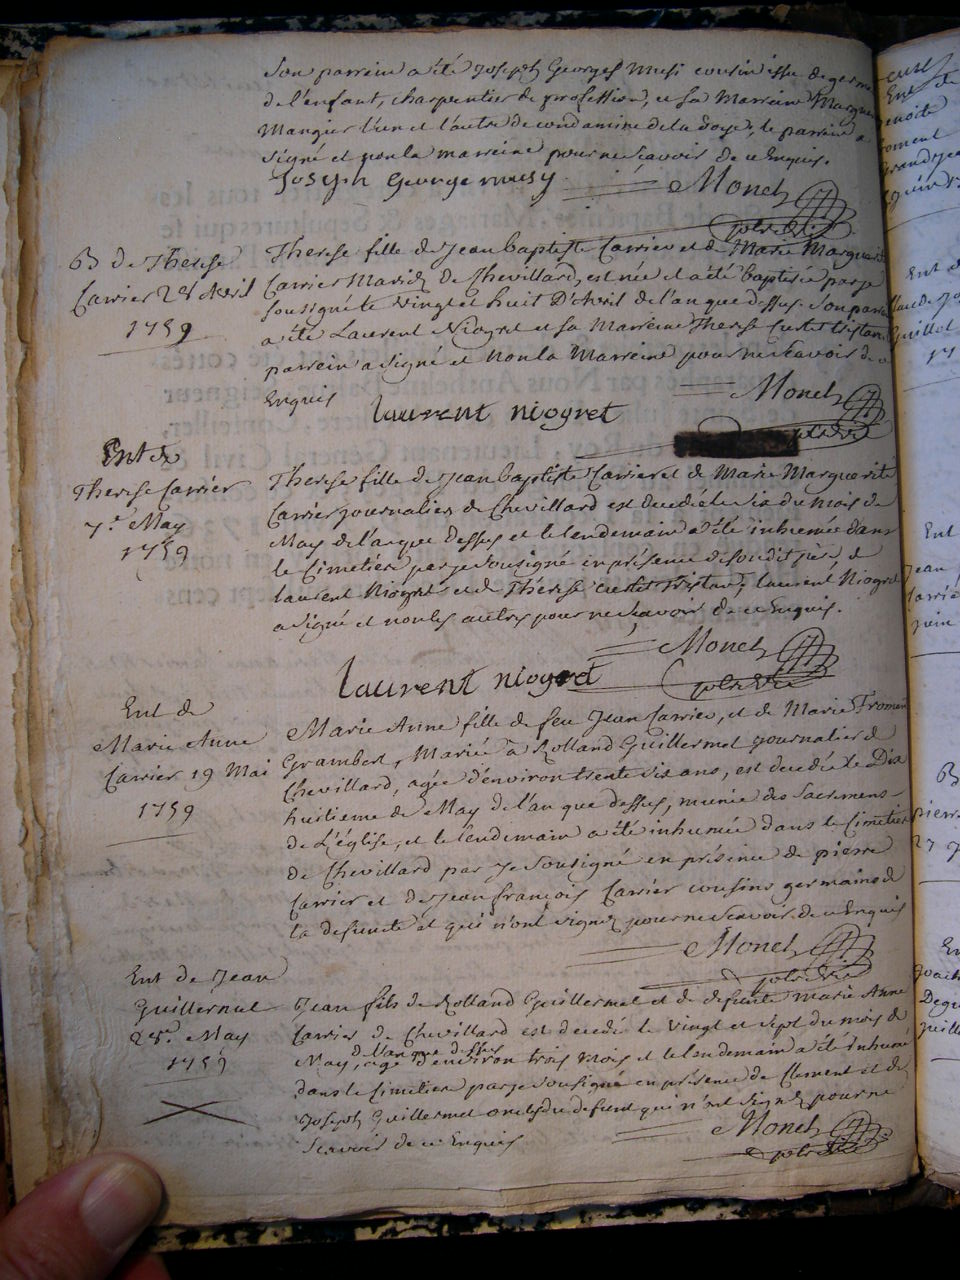 son parrein a été Joseph Georges Musi cousin issu de germ
de l'enfant, charpentier de profession, et sa Marreine Margue
Mangier l'un et l'autre de condamine de la Doye, le parrein a
signé et non la marreine pour ne sçavoir de ce Enquis.
Joseph George musy Monet
ptre Vic
B de Therese
Carrier 28 Avril
1759
Therese fille de Jean baptiste Carrier et de Marie Marguerit
Carrier Mariés de Chevillard, est née et a été baptisée par je
sousigné le Vingt et huit D'Avril de l'an que dessus. Son parrein
a été Laurent Niogret et sa Marreine Therese
parrein a signé et non la Marreine pour ne sçavoir de ce
Enquis laurent niogret Monet
ptre Vic
Ent de
Therese Carrier
7e May
1759
Therese fille de Jean baptiste Carrier et de Marie Marguerite
Carrier journalier de Chevillard est decedée le six du mois de
May de l'an que dessus et le lendemain a été inhumée dans
le Cimetier par je sousigné en présence de son dit pere, de
laurent Niogret et de Thérèse laurent Niogret
a signé et non les autres pour ne sçavoir de ce Enquis.
laurent niogret Monet
ptre Vic
Ent de
Marie Anne
Carrier 19 Mai
1759
Marie Anne fille de feu Jean Carrier, et de Marie Froment
Grambert, Mariée à Rolland Guillermet journalier de
Chevillard, agée d'environ trente six ans, est decedée le Dix
huitieme de May de l'an que dessus, munie des Sacremens
de L'église, et le lendemain a été inhumée dans le Cimetier
de Chevillard par Je sousigné en présence de pierre
Carrier et de Jean françois Carrier cousins germains de
la defunte et qui n'ont signez pour ne sçavoir de ce Enquis
Monet
ptre Vic
Ent de Jean
Guillermet
28e May
1759
Jean fils de Rolland Guillermet et de defunte Marie Anne
Carrier de Chevillard est decedé le Vingt et sept du mois de
de l'an que dessus
May, agé D'environ trois mois et le lendemain a été inhumé
dans le Cimetier par je sousigné en présence de Clement et de
Joseph Guillermet oncles du defunt qui n'ont signez pour ne
Scavoir de ce Enquis Monet
ptre Vic